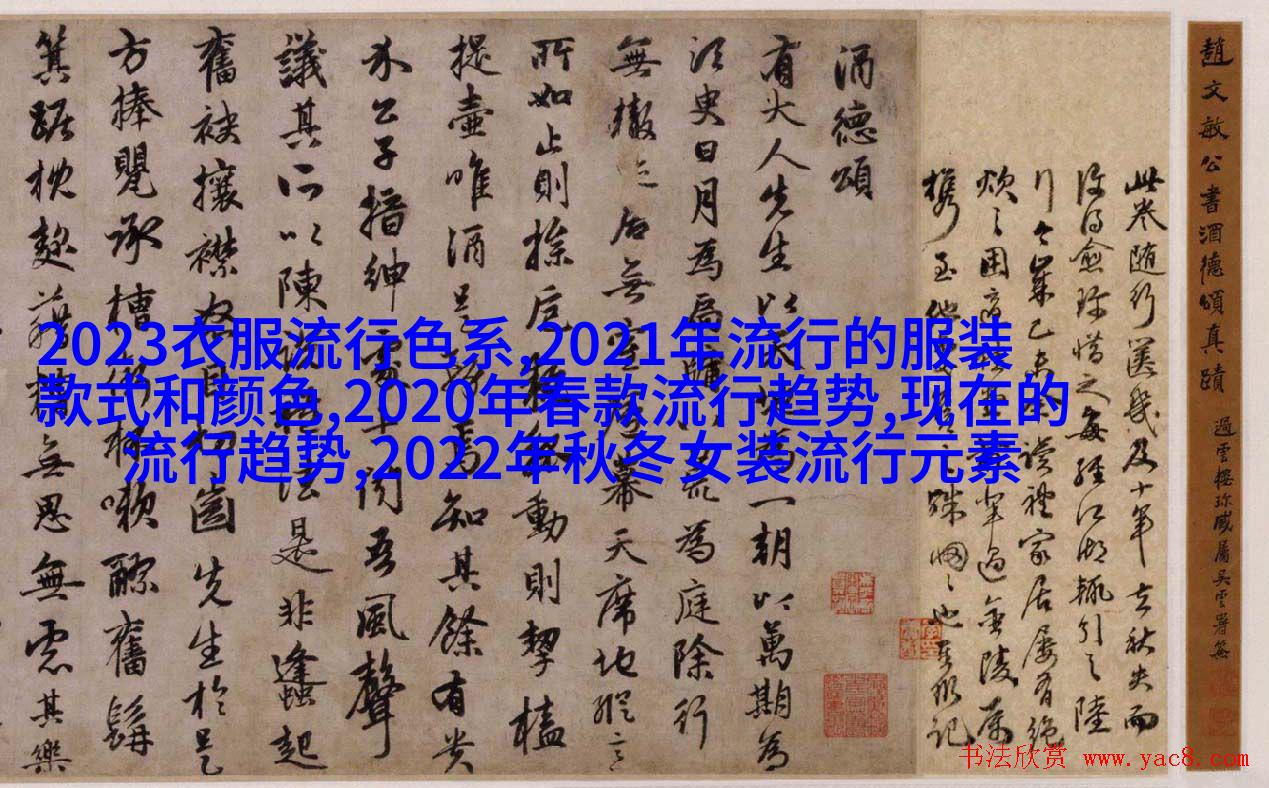 趙文敏公書酒德頌真蹟
過雲樓珍藏屬吳雲署簽
此卷随行篋幾及十年去秋失而
復得愈珍惜之每經江湖輒引之陸
讀禮家居屢有絕
炊之困
酒德頌
有大人先生以天地為一朝以萬期為
須臾日月為扃牖八荒為庭除行
無轍迹居無室廬幕天席地縱意
所如止則操卮執瓢動則挈榼
提壺唯酒是務焉知其餘有貴
介公子搢紳處士聞吾風聲
議其所以陳說禮法是非蠭起
奮袂攘襟怒目切齒先生於是
方捧甖承槽銜杯漱醪奮髯
箕踞枕麴藉糟無思無慮其樂
2023衣服流行色系,2021年流行的服装
款式和颜色,2020年春款流行趋势,现在的
流行趋势,2022年秋冬女装流行元素
书法欣赏 www.yac8.com